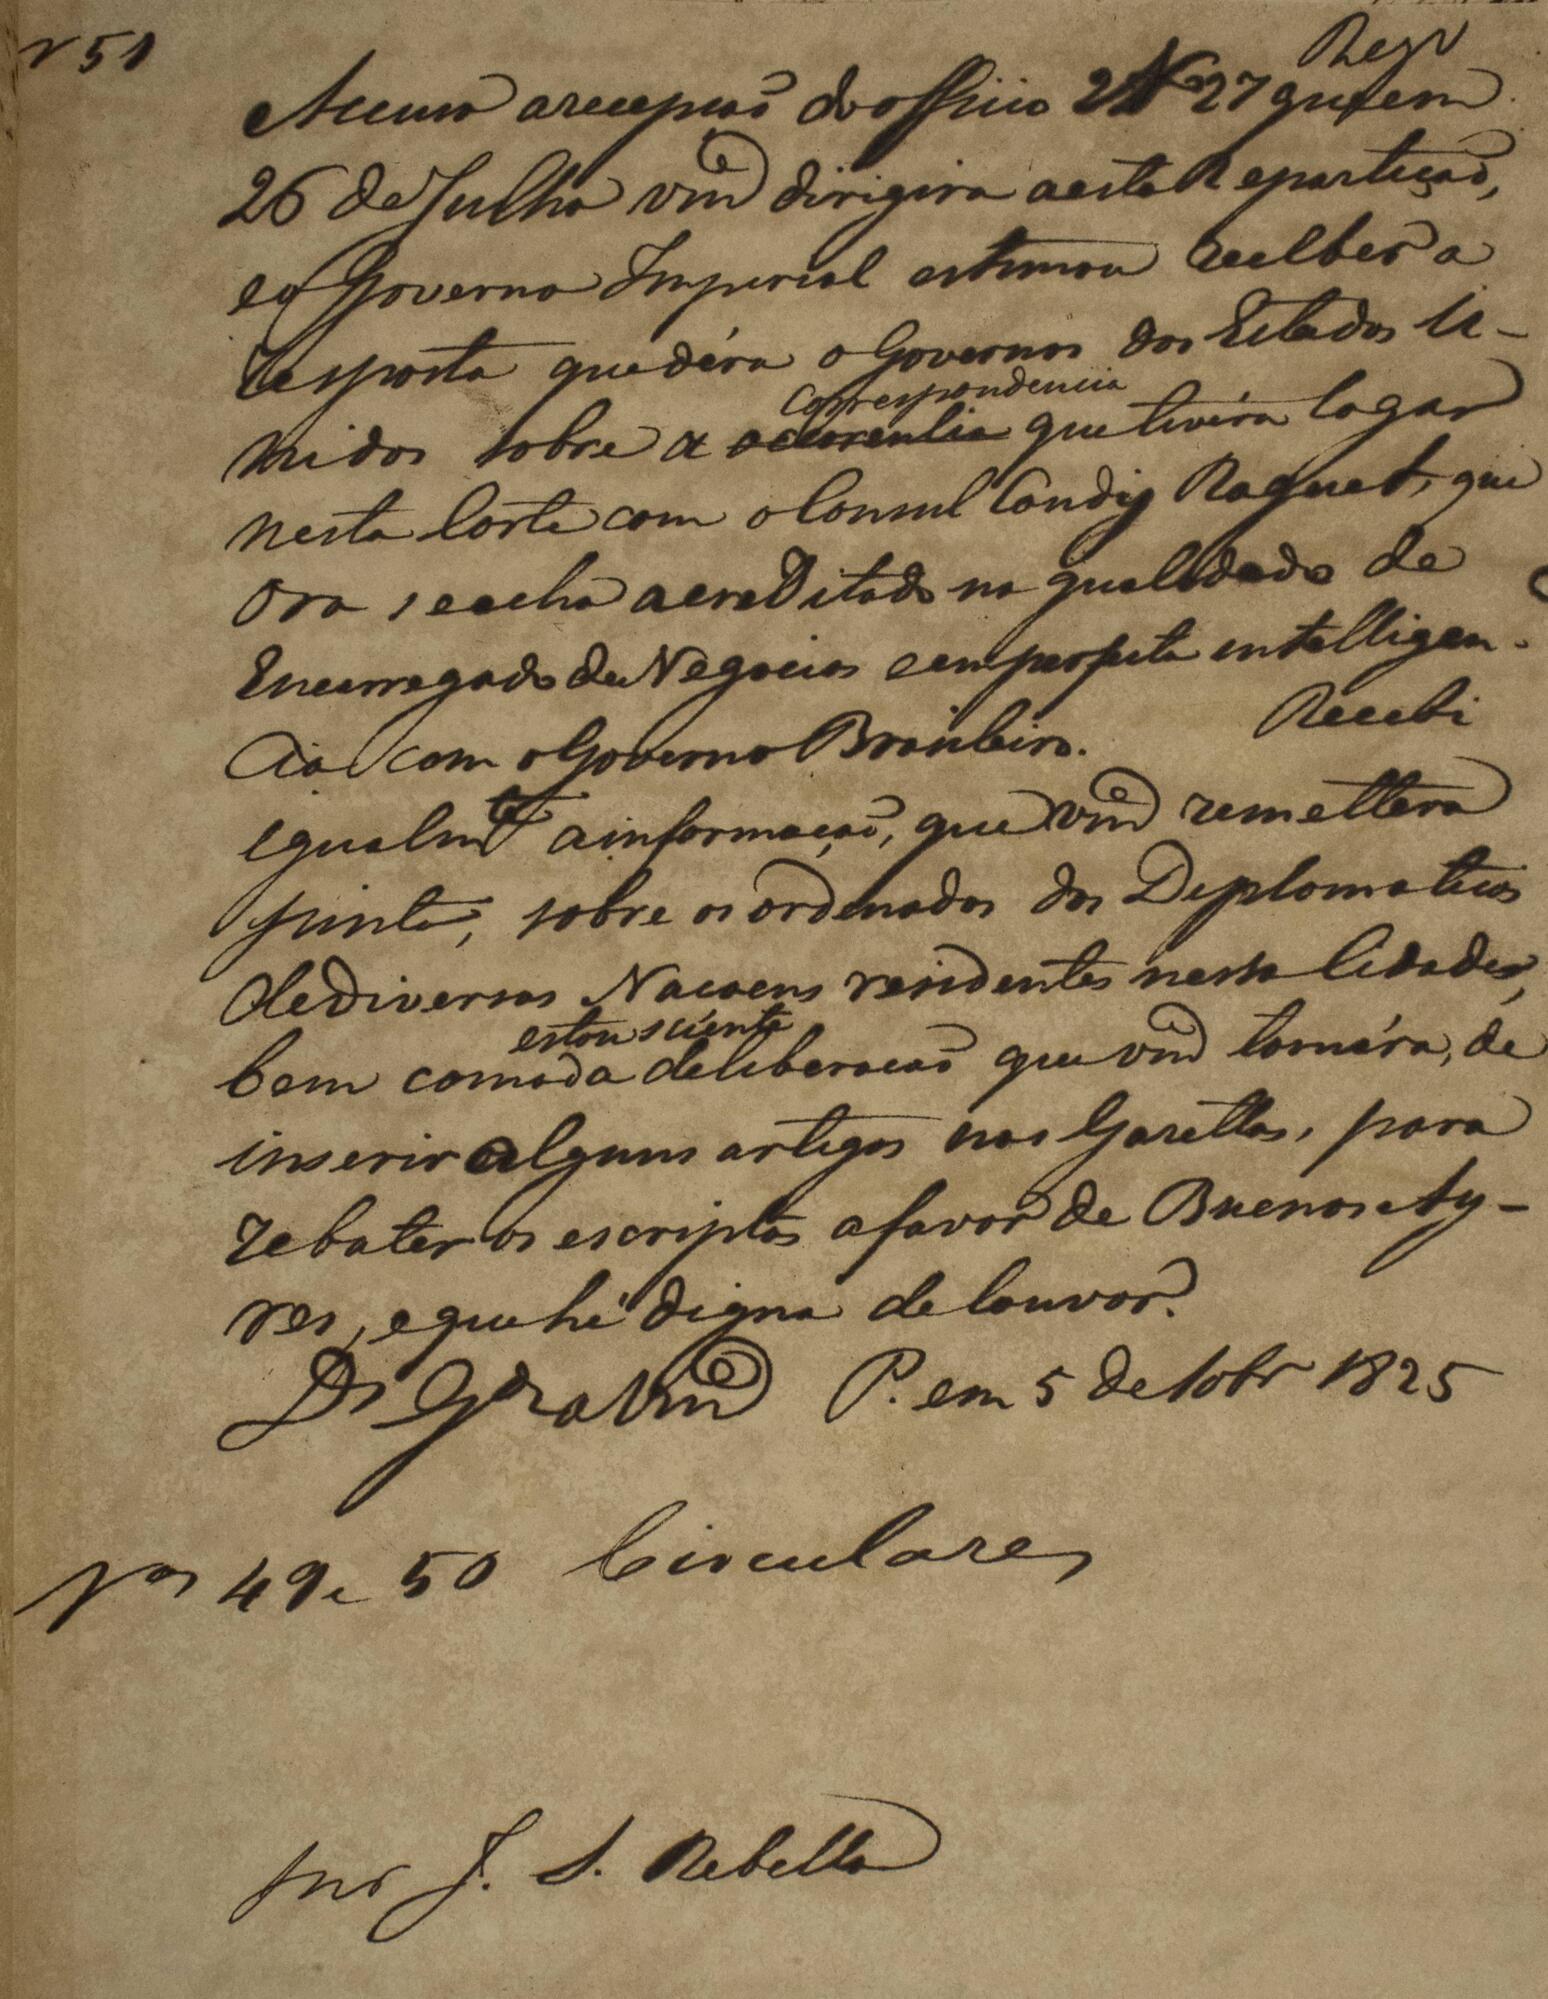 N 51
Regdo
Accuso a recepção do officio N 27 que em
26 de Julho vmce dirigira a esta Repartição,
e o Governo Imperial estimou receber a
resposta que déra o Governo dos Estados U-
nidos sobre a occorencia correspondencia que tivéra logar
nesta Corte com o Consul Condy Raguet, que
ora se acha acreditado na qualidade de
Encarregado de Negocios e em perfeita intelligen-
cia com o Governo Brasileiro. Recebi
igualmte a informação, que vmce remettera
junta, sobre os ordenados dos Diplomaticos
de diversas Nacoens residentes nessa Cidade,
estou sciente
bem como da deliberacão que vmce tomára, de
inserir alguns artigos nas Gazettas, para
rebater os escriptos a favor de Buenos Ay-
res, e que hé digna de louvor.
Ds Gde a Vmce P. em 5 de 10br 1825
Nos 49 e 50 Circulares
Snr J. S. Rebello